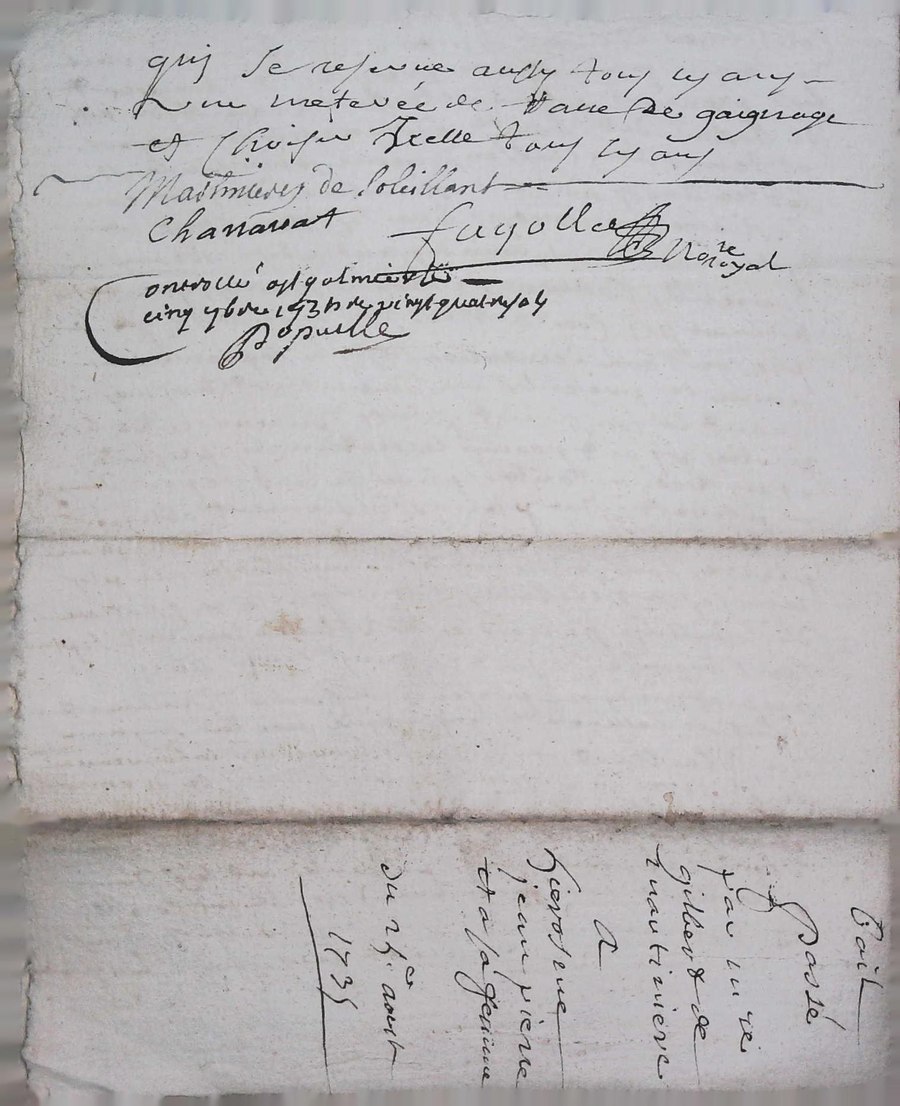 quy se reserve aussy tous les ans
une meterée de terre de gaignage
et choisir Icelle tous les ans
Martinieres de Soleillant
Charravat
fayolle No.re royal
Controllé a st galmier le
cinq 7bre 1735 vingt quatre sols
Populle
Bail
Passé
par mre
gilbert de
martiniere
A
hierosme
jean pierre
et a sa femme
du 25e aoust
1735